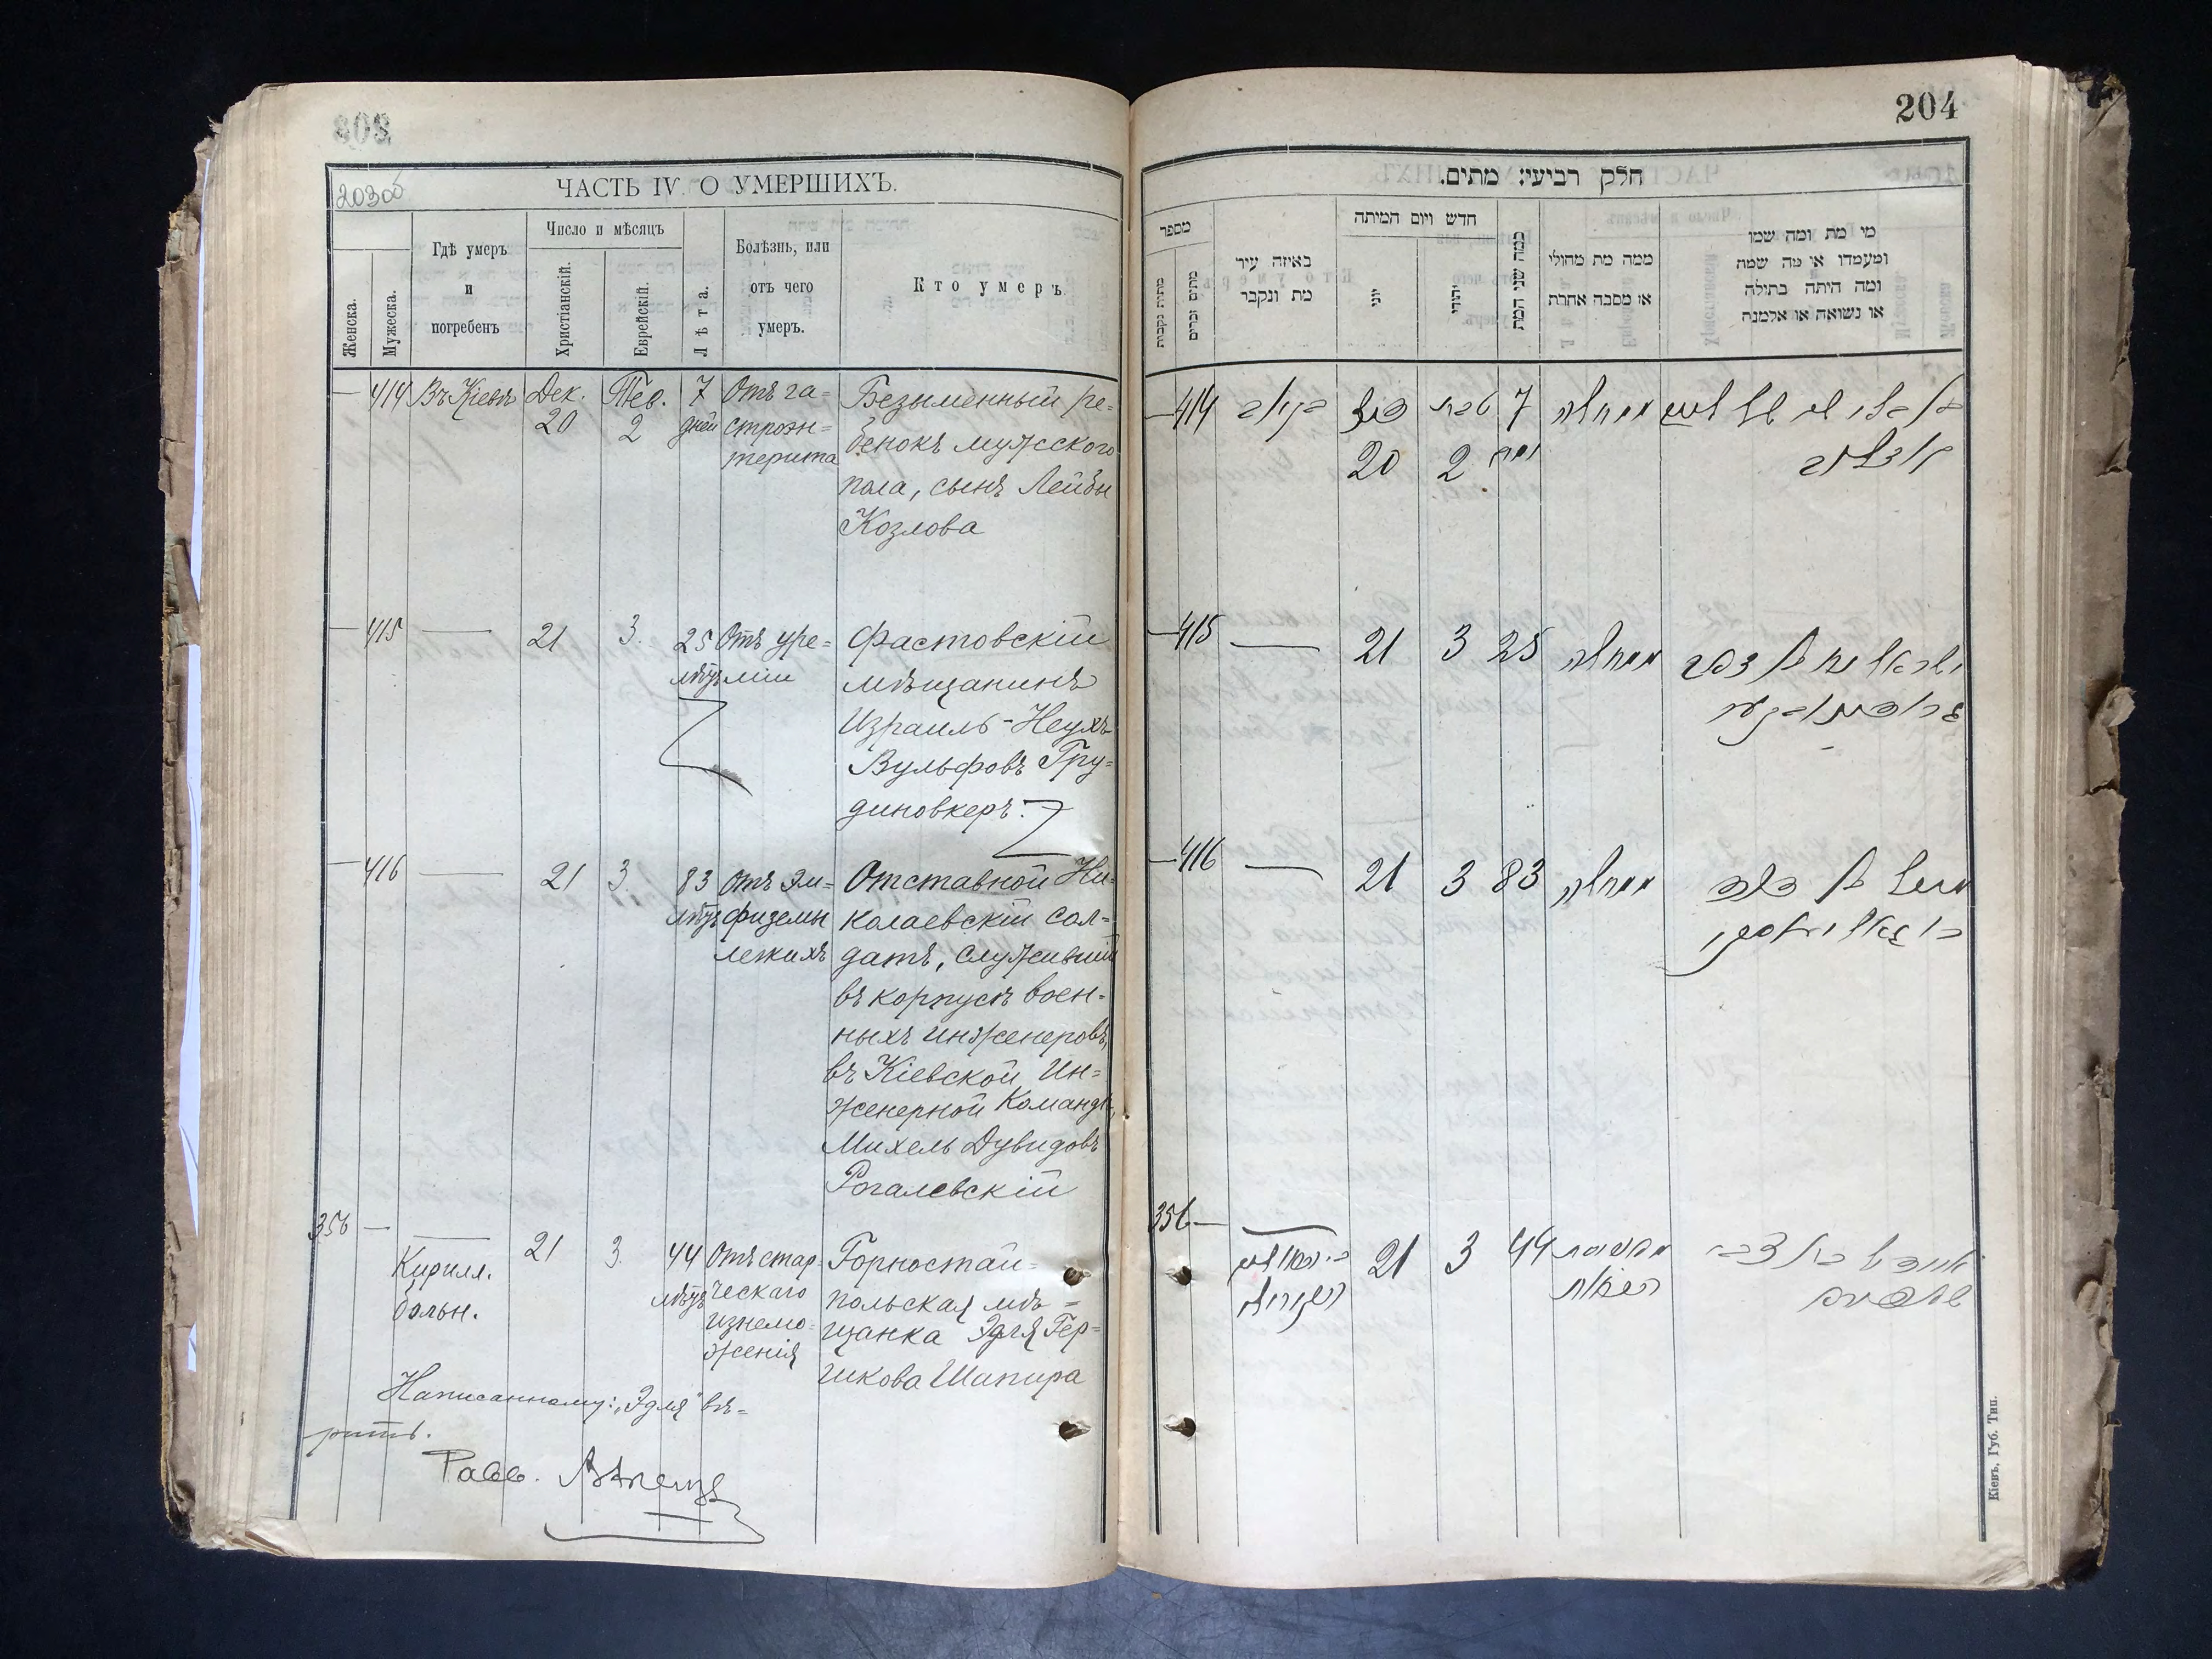 203об
ЧАСТЬ IV. О УМЕРШИХЪ.
Женска.
Мужеска.
Гдѣ умеръ
и
погребенъ
Число и мѣсяцъ
Христіанскій.
Еврейскій.
Лѣта.
Болѣзнь, или
отъ чего
умеръ.
Кто умеръ
— 414 Въ Кіевѣ Дек. 20 Тев. 2 7 дней
Отъ га=
строэн=
терита
Безыменный ре=
бенокъ мужского
пола, сынъ Лейбы
Козлова
— 415 — 21 3. 25 лѣтъ
Отъ уре=
міи
Фастовскій
мѣщанинъ
Израиль-Неухъ
Вульфовъ Гру=
диновкеръ.
— 416 — 21 3. 83 лѣтъ
Отъ эм=
физемы
легкихъ
Отставной Ни=
колаевскій сол=
датъ, служившій
въ корпусѣ воен=
ныхъ инженеровъ,
въ Кіевской Ин=
женерной Команд.,
Михель Дувидовъ
Рогалевскій
356 —
Кирилл.
больн.
21 3. 44 лѣтъ
Отъ стар=
ческаго
изнемо=
женія
Горностай=
польская мѣ=
щанка Эдля Гер=
шкова Шапира
Написанному: „Эдля" вѣ=
рить.
Равв.
204
חלק רביעי: מתים.
מספר
מתות נקבות
מתים זכרים
באיזה עיר
מת ונקבר
חדש ויום המיתה
יוני
יהודי
כמה שני המת
ממה מת מחולי
או מסבה אחרת
מי מת ומה שמו
ומעמדו או מה שמה
ומה היתה בתולה
או נשואה או אלמנה
— 414 20 טבת 2 7 ימים ממחלה
— 415 — 21 3 25 ממחלה
— 416 — 21 3 83 ממחלה
356 — 21 3 44
Кіевъ, Губ. Тип.